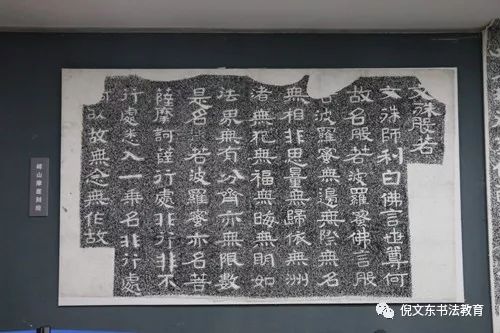 文殊般若
文殊師利白佛言世尊何
故名般若波羅蜜佛言般
若波羅蜜無邊無際無名
無相非思量無歸依無洲
渚無犯無福無晦無明如
法界無有分齊亦無限數
是名般若波羅蜜亦名菩
薩摩訶薩行處非行非不
行處悉入一乘名非行處
何以故無念無作故
山摩崖刻经
倪文东书法教育